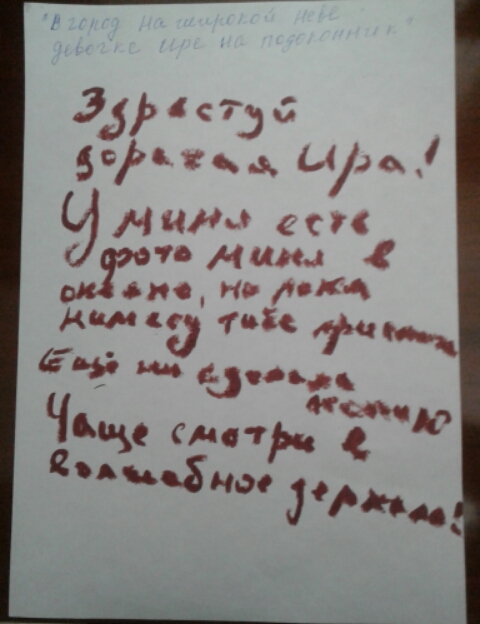 "В город на широкой Неве
девочке Ире на подоконник"
Здраствуй
дорагая Ира!
У миня есть
фото миня в
океане, но пака
нимагу тибе прислать
Ещё ни сделала
копию
Чаще смотри в
волшабное зеркало!